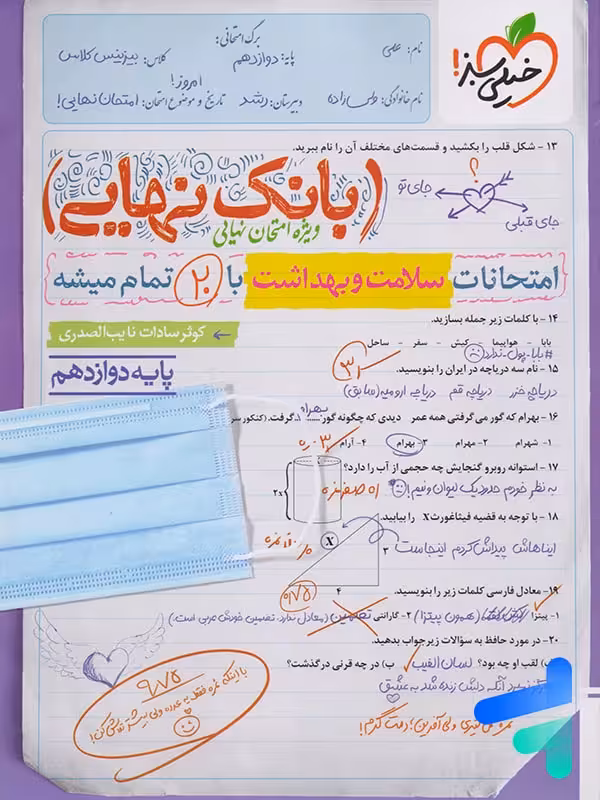 خیلی سبز!
برگ امتحانی:
نام: علمی
پایه: دوازدهم
کلاس: بیزینس کلاس
نام خانوادگی: ولی زاده
دبیرستان: رشد
امروز!
تاریخ و موضوع امتحان: امتحان نهایی!
۱۳ - شکل قلب را بکشید و قسمت‌های مختلف آن را نام ببرید.
؟
جای تو
جای قبلی
(بانک نهایی)
ویژه امتحان نهایی
امتحانات سلامت و بهداشت با ۲۰ تمام میشه
۱۴ - با کلمات زیر جمله بسازید.
بابا - هواپیما - کیش - سفر - ساحل
#بابا_پول_ندارد
کوثر سادات نایب‌الصدری
پایه دوازدهم
۱۵ - نام سه دریاچه در ایران را بنویسید.
دریاچه خزر دریاچه قم دریاچه ارومیه (سابق)
۱۶ - بهرام که گور می‌گرفتی همه عمر دیدی که چگونه گور بهرام گرفت. (کنکور سر
۱- شهرام ۲- مهرام ۳- بهرام ۴- آرام
۱۷ - استوانه روبرو گنجایش چه حجمی از آب را دارد؟
2x
به نظر خودم حدود یک لیوان و نیم!
۱۸ - با توجه به قضیه فیثاغورث X را بیابید.
X
۳
۴
ایناهاش پیداش کردم اینجاست
۱۹- معادل فارسی کلمات زیر را بنویسید.
۱- پیتزا (همون پیتزا) ۲- گارانتی تضمین (معادل ندارد. تضمین خودش عربی است.)
۲۰- در مورد حافظ به سؤالات زیر جواب بدهید.
لقب او چه بود؟ لسان الغیب ب) در چه قرنی درگذشت؟
هرگز نمیرد آنکه دلش زنده شد به عشق
۹/۷۵